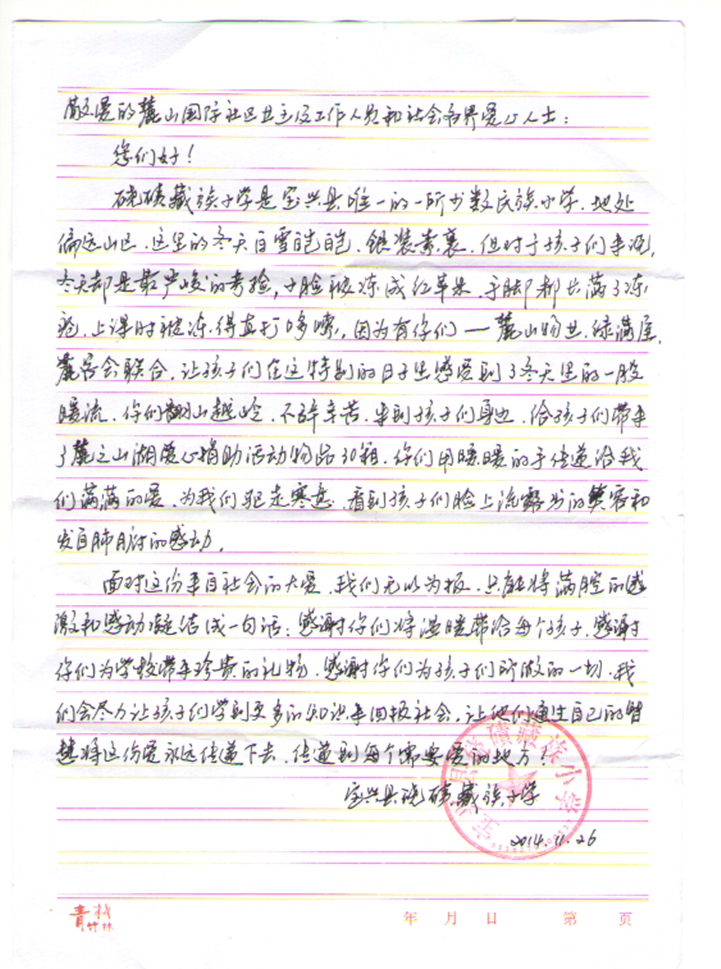 敬爱的麓山国际社区业主及工作人员和社会各界爱心人士：
您们好！
硗碛藏族小学是宝兴县唯一的一所少数民族小学，地处
偏远山区，这里的冬天白雪皑皑，银装素裹，但对于孩子们来说，
冬天却是最严峻的考验，小脸被冻成红苹果，手脚都长满了冻
疮，上课时被冻得直打哆嗦，因为有你们——麓山物业、绿满庭、
麓客会联合，让孩子们在这特别的日子里感受到了冬天里的一股
暖流，你们翻山越岭，不辞辛苦，来到孩子们身边，给孩子们带来
了麓之山湖爱心捐助活动物品30箱，你们用暖暖的手传递给我
们满满的爱，为我们驱走寒意，看到孩子们脸上流露出的笑容和
发自肺腑的感动。
面对这份来自社会的大爱，我们无以为报，只能将满腔的感
激和感动凝结成一句话：感谢你们将温暖带给每个孩子，感谢
你们为学校带来珍贵的礼物，感谢你们为孩子们所做的一切，我
们会尽力让孩子们学到更多的知识来回报社会，让他们通过自己的智
慧将这份爱永远传递下去，传递到每个需要爱的地方！
宝兴县硗碛藏族小学
2014.11.26
宝兴县硗碛藏族小学
青竹林
年 月 日 第 页